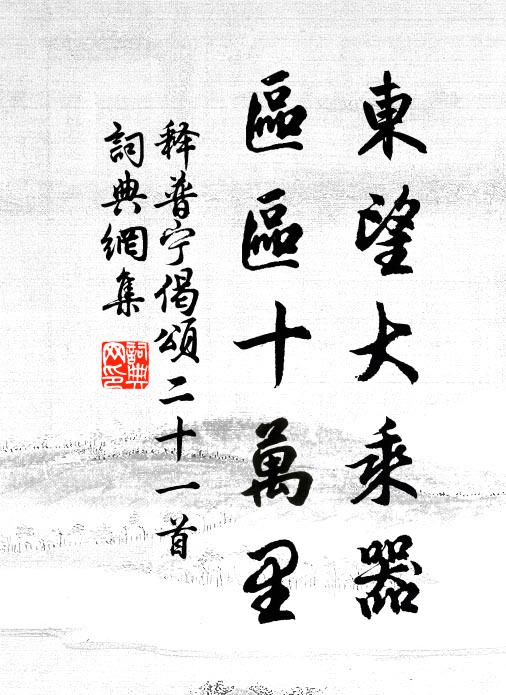 東望大乘器
區區十萬里
释普宁偈頌二十一首
詞典網集
詞典
网印